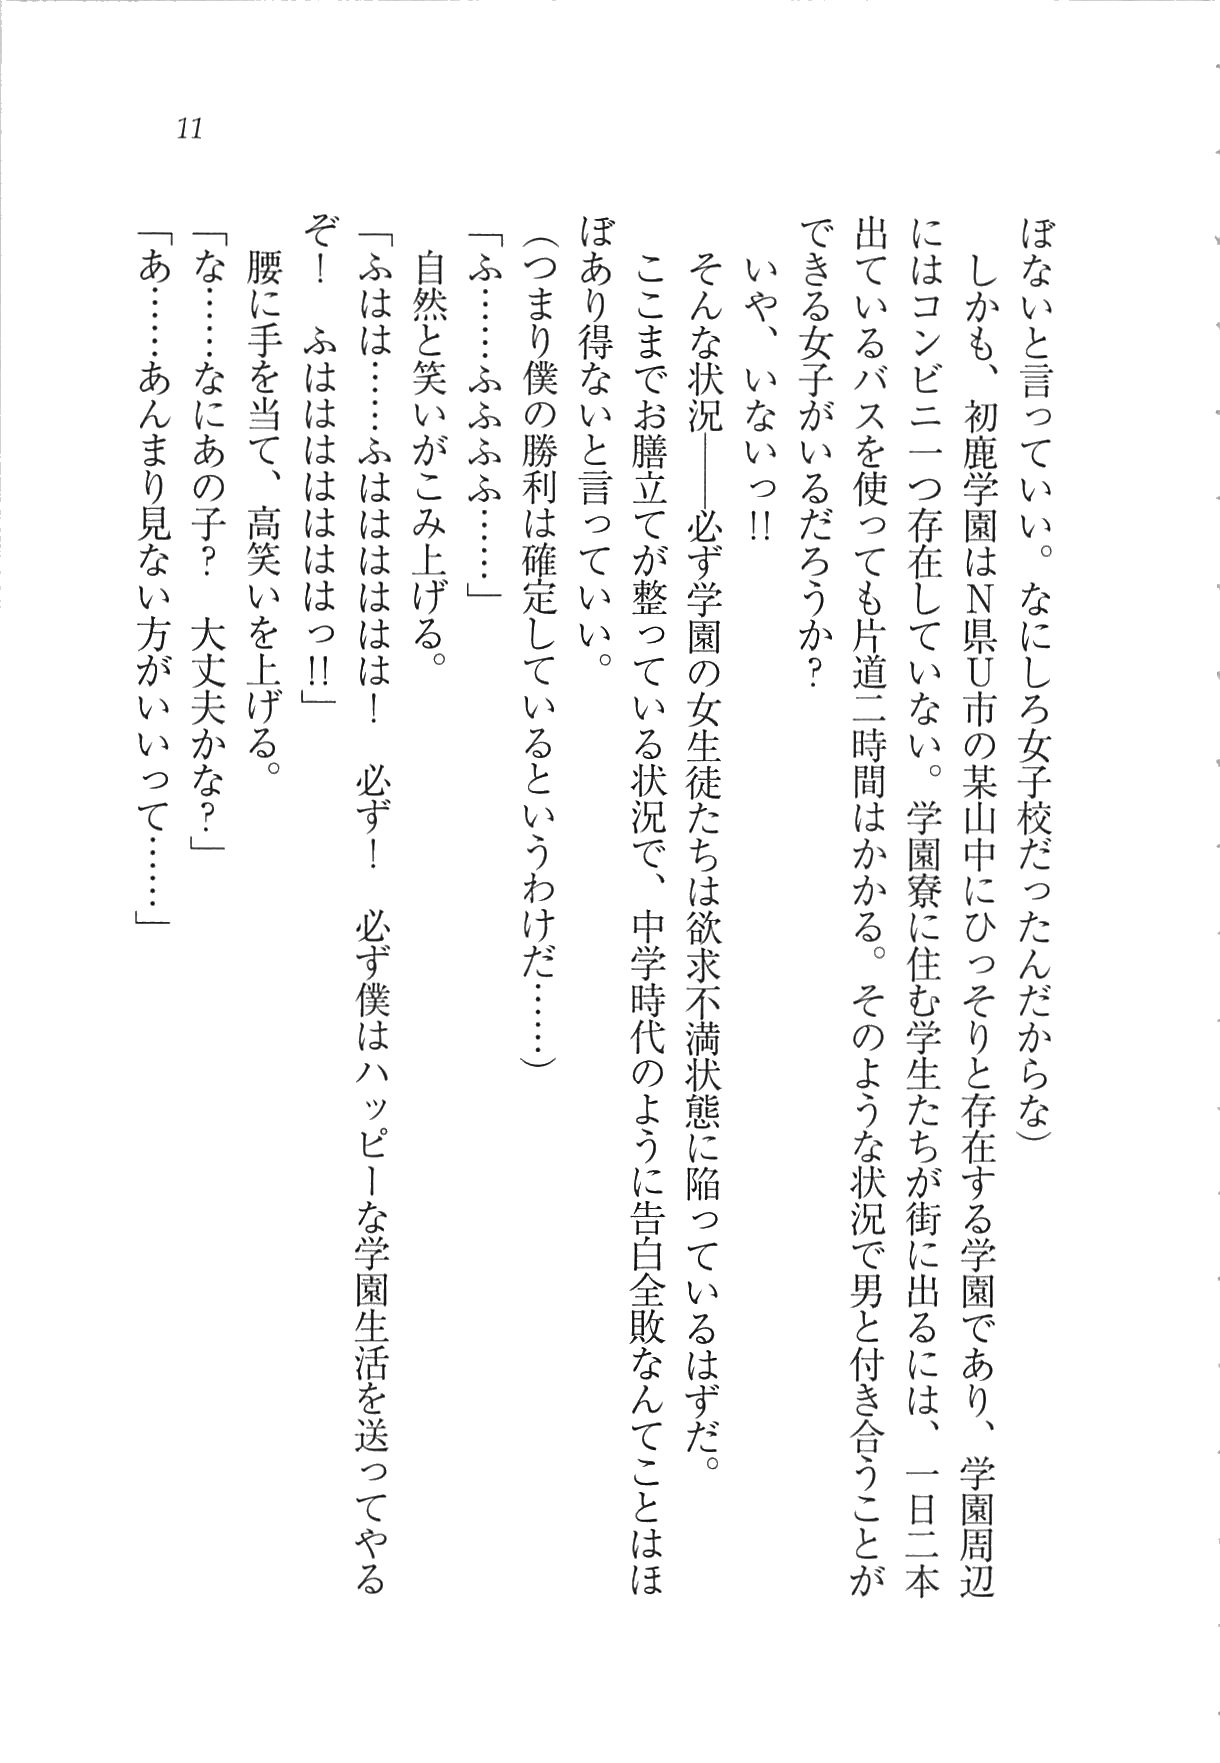 11
ぼないと言っていい。なにしろ女子校だったんだからな）
　しかも、初鹿学園はＮ県Ｕ市の某山中にひっそりと存在する学園であり、学園周辺
にはコンビニ一つ存在していない。学園寮に住む学生たちが街に出るには、一日二本
出ているバスを使っても片道二時間はかかる。そのような状況で男と付き合うことが
できる女子がいるだろうか？
　いや、いないっ!!
　そんな状況――必ず学園の女生徒たちは欲求不満状態に陥っているはずだ。
　ここまでお膳立てが整っている状況で、中学時代のように告白全敗なんてことはほ
ぼあり得ないと言っていい。
（つまり僕の勝利は確定しているというわけだ……）
「ふ……ふふふふ……」
　自然と笑いがこみ上げる。
「ふはは……ふはははははは！　必ず！　必ず僕はハッピーな学園生活を送ってやる
ぞ！　ふははははははははっ!!」
　腰に手を当て、高笑いを上げる。
「な……なにあの子？　大丈夫かな？」
「あ……あんまり見ない方がいいって……」